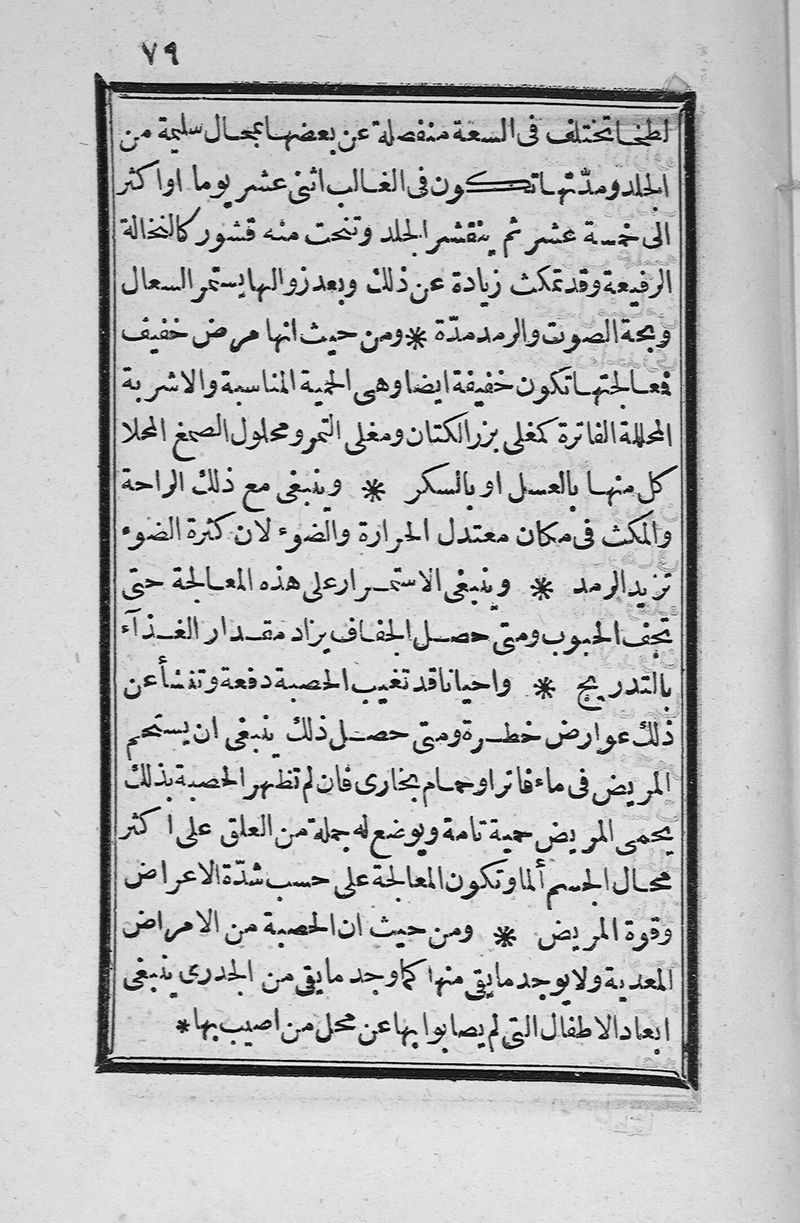 ٧٩
لطخا تختلف فى السعة منفصلة عن بعضها بمحال سليمة من
الجلد ومدّتها تكون فى الغالب اثنى عشر يوما او اكثر
الى خمسة عشر ثم ينقشر الجلد وتنحت منه قشور كالنخالة
الرفيعة وقد تمكث زيادة عن ذلك وبعد زوالها يستمر السعال
وبحة الصوت والرمد مدّة * ومن حيث انها مرض خفيف
فعالجتها تكون خفيفة ايضا وهى الحمية المناسبة والاشربة
المحللة الفاترة كمغلى بزر الكتان ومغلى التمر ومحلول الصمغ المحلا
كل منها بالعسل او بالسكر * وينبغى مع ذلك الراحة
والمكث فى مكان معتدل الحرارة والضوء لان كثرة الضوء
تزيد الرمد * وينبغى الاستمرار على هذه المعالجة حتى
تجف الحبوب ومتى حصل الجفاف يزاد مقدار الغذآء
بالتدريج * واحيانا قد تغيب الحصبة دفعة وتنشأ عن
ذلك عوارض خطرة ومتى حصل ذلك ينبغى ان يستحم
المريض فى ماء فاتر او حمام بخارى فان لم تظهر الحصبة بذلك
يحمى المريض حمية تامة ويوضع له جملة من العلق على اكثر
محال الجسم ألما وتكون المعالجة على حسب شدّة الاعراض
وقوة المريض * ومن حيث ان الحصبة من الامراض
المعدية ولا يوجد ما يقى منها كما وجد ما يقى من الجدرى ينبغى
ابعاد الاطفال التى لم يصابوا بها عن محل من اصيب بها *